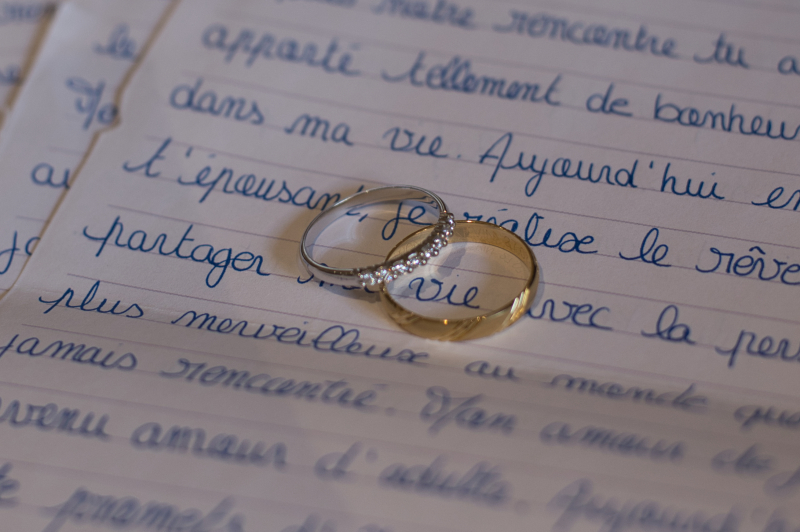 notre rencontre tu a
apporté tellement de bonheur
dans ma vie. Aujourd'hui en
t'épousant, je réalise le rêve
partager ma vie avec la per
plus merveilleuse au monde que
jamais rencontré. D'an amour de
venu amour d'adulte. Aujourd'h
promets